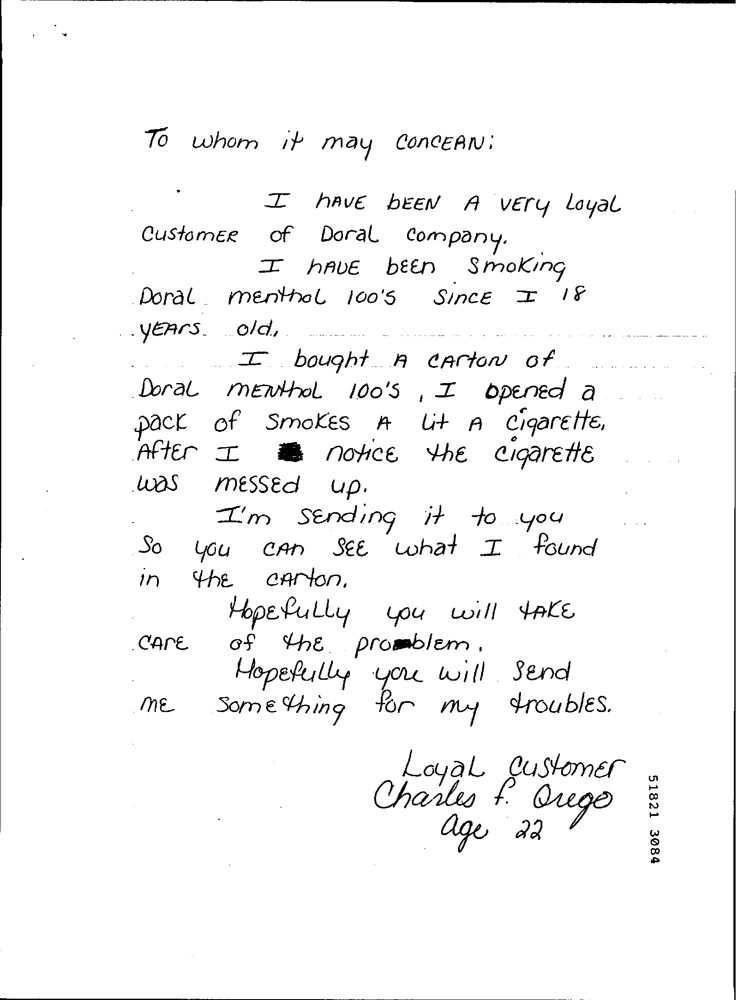 To whom it may concern:
I have been a very loyal
customer of Doral company.
I have been smoking
Doral menthol 100's since I 18
years old,
I bought a carton of
Doral menthol 100's, I opened a
pack of smokes a lit a cigarette,
After I notice the cigarette
was messed up.
I'm sending it to you
So you can see what I found
in the carton.
Hopefully you will take
care of the problem.
Hopefully you will send
me something for my troubles.
Loyal customer
Charles f. Orego
age 22
51821 3084